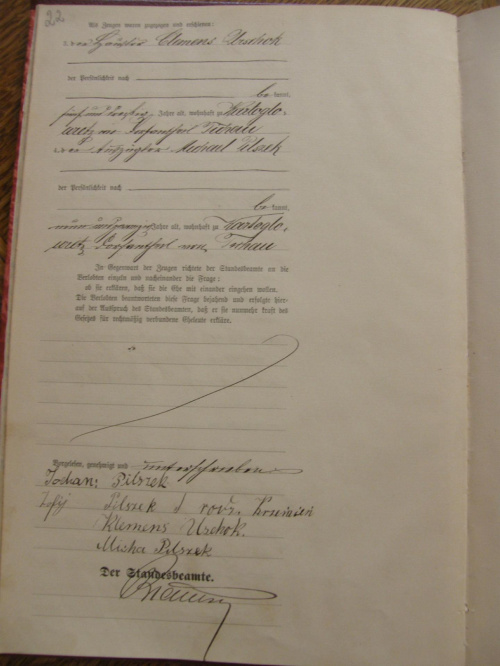 22
Als Zeugen waren zugezogen und erschienen:
1. der Häusler Clemens Urschok
der Persönlichkeit nach
be kannt,
fünf und dreißig Jahre alt, wohnhaft zu
2. der Auszügler Michael Pilszek
der Persönlichkeit nach
be kannt,
neun und Jahre alt, wohnhaft zu
von Tichau
In Gegenwart der Zeugen richtete der Standesbeamte an die
Verlobten einzeln und nacheinander die Frage:
ob sie erklären, daß sie die Ehe mit einander eingehen wollen.
Die Verlobten beantworteten diese Frage bejahend und erfolgte hier-
auf der Ausspruch des Standesbeamten, daß er sie nunmehr kraft des
Gesetzes für rechtmäßig verbundene Eheleute erkläre.
Vorgelesen, genehmigt und unterschrieben
Johan: Pilszek
Zofij Pilszek
Klemens Urchok.
Micha Pilszek
Der Standesbeamte.